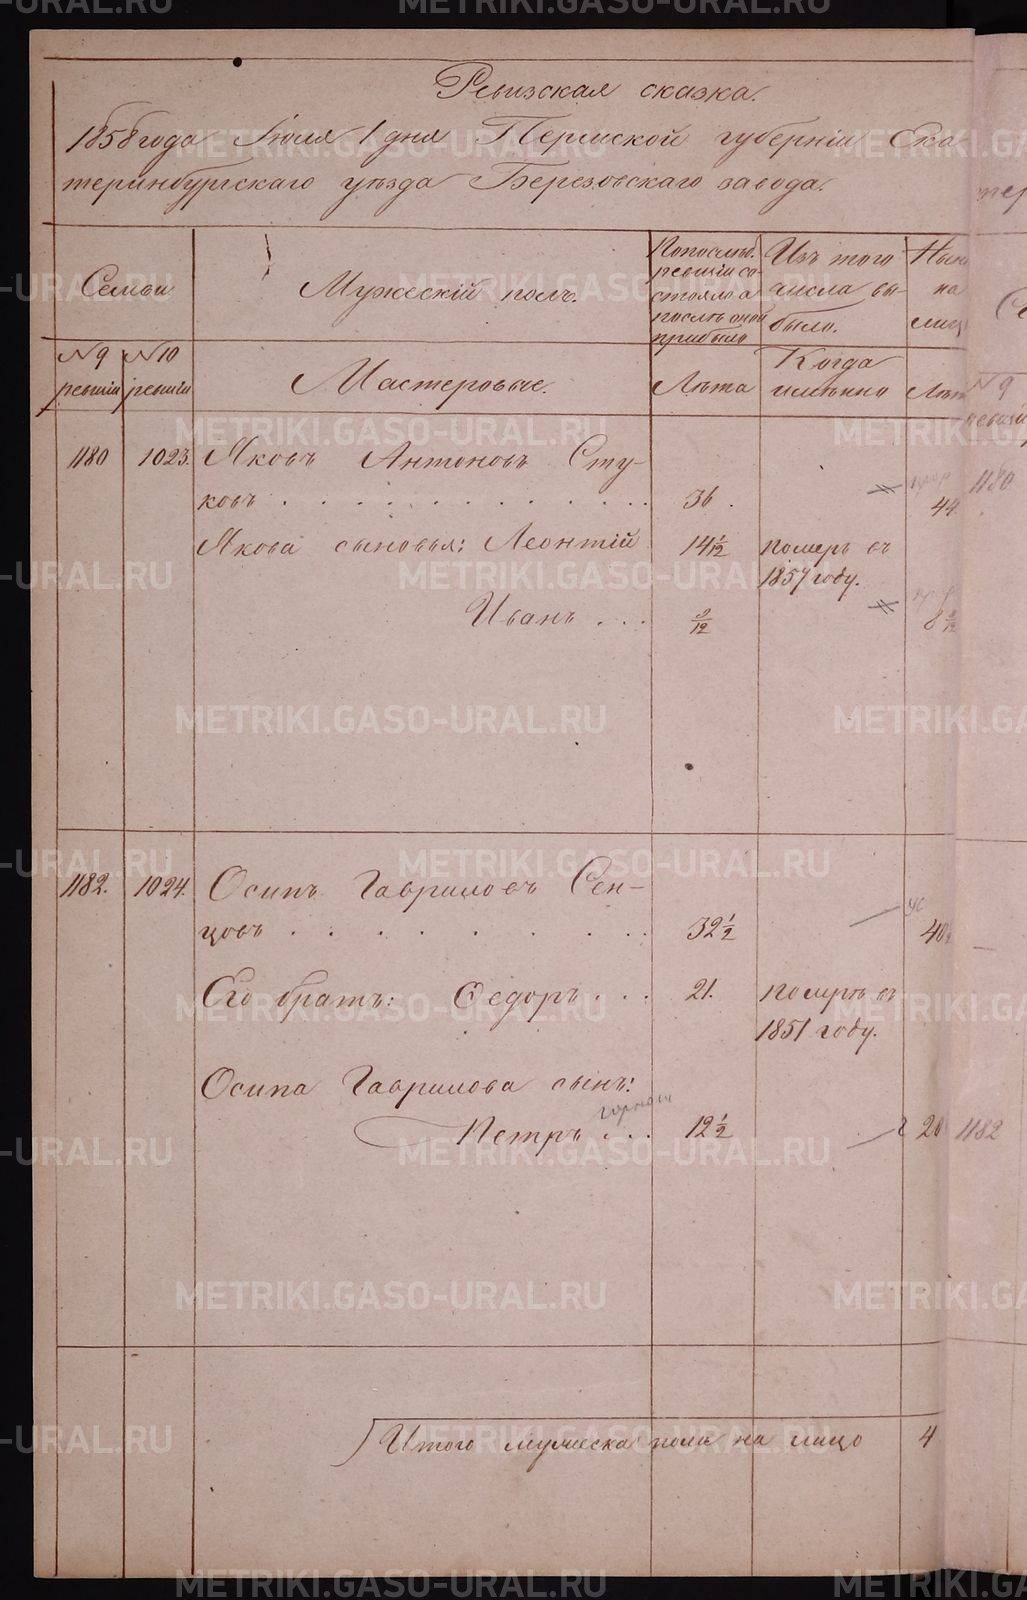 Ревизская сказка.
1858 года Июля 1 дня Пермской губерніи Ека
теринбургскаго уѣзда Березовскаго завода.
Семьи
Мужескій полъ.
По послѣд.
ревизіи со-
стояло а
послѣ оной
прибыло
Изъ того
числа вы-
было.
Нын
на
лиц
№ 9
ревизіи
№ 10
ревизіи
Мастеровые.
Лѣта
Когда
именно
Лѣт
№ 9
1180 1023. Яковъ Антоновъ Сту-
ковъ . . . . . . . . . . . . 36. 44
Якова сыновья: Леонтій 14 1/12 померъ въ
1857 году.
Иванъ . . . 9/12 8 9/12
1180
1182. 1024. Осипъ Гавриловъ Сен-
цовъ . . . . . . . . . 32 1/2 40 1/2
Его братъ: Ѳедоръ . . . 21. померъ въ
1851 году.
Осипа Гаврилова сынъ:
Петръ . . . 12 1/2 20
1182
Итого мужеска пола на лицо 4
METRIKI.GASO-URAL.RU